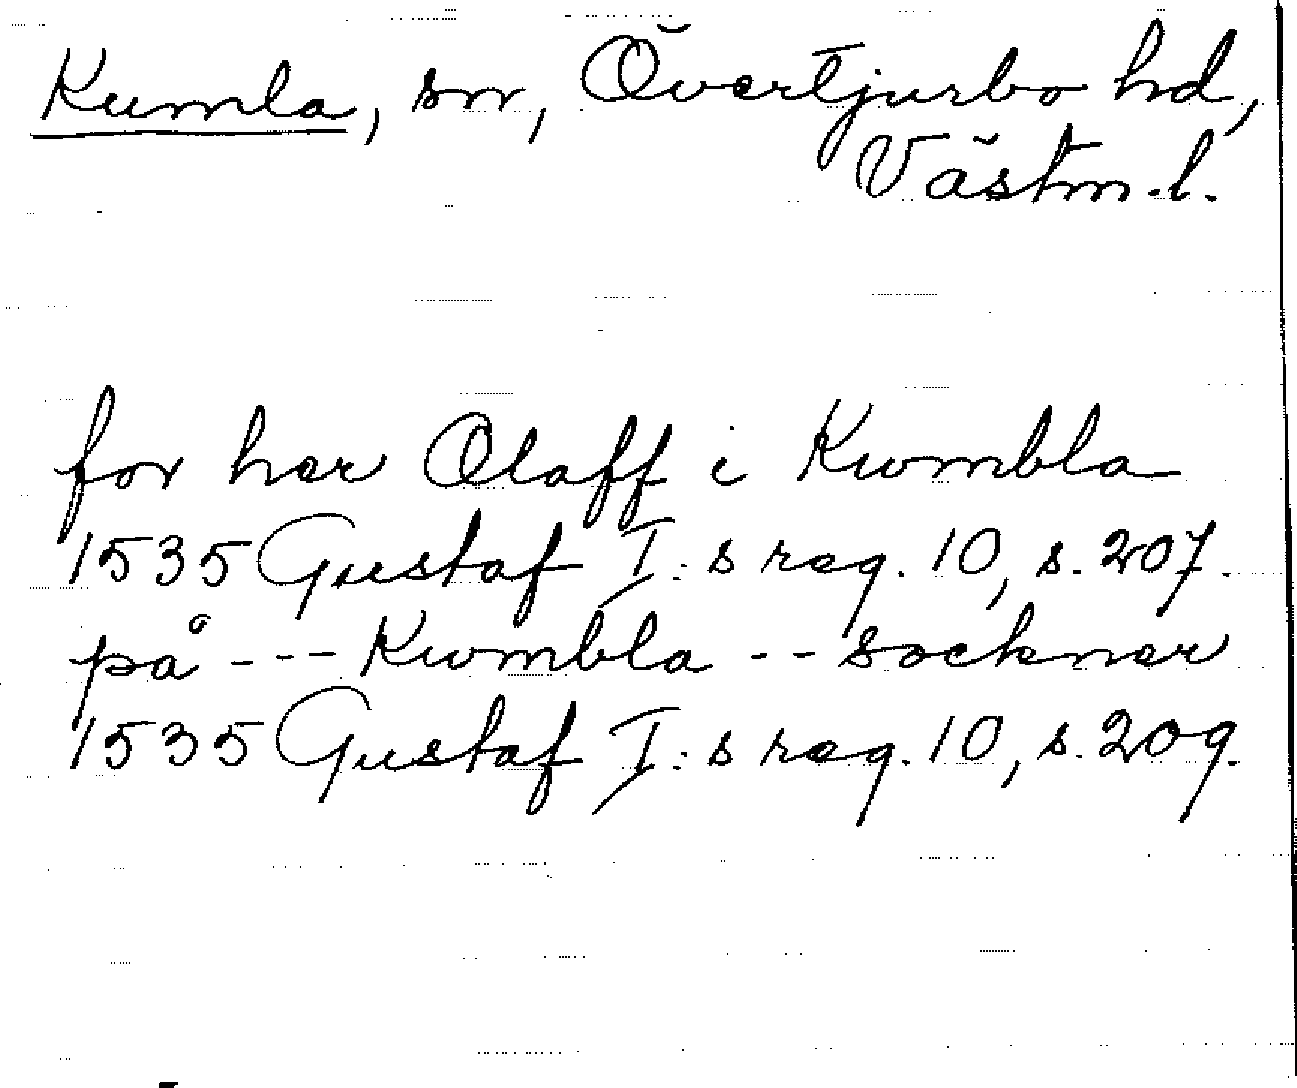 Kumla, sn, Övertjurbo hd,
Västm.l.
for her Olaff i Kwmbla
1535 Gustaf I:s reg. 10, s. 207.
på --- Kwmbla -- sockner
1535 Gustaf I:s reg. 10, s. 209.